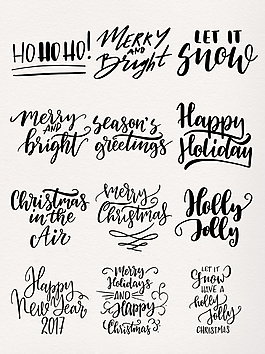 HO HO HO!
Merry
AND
Bright
LET IT
Snow
Merry
AND
bright
Season's
greetings
Happy
Holiday
Christmas
in the
Air
Merry
Christmas
Holly
Jolly
Happy
New Year
2017
Merry
Holidays
AND
Happy
Christmas
LET IT
Snow
HAVE A
holly
Jolly
CHRISTMAS